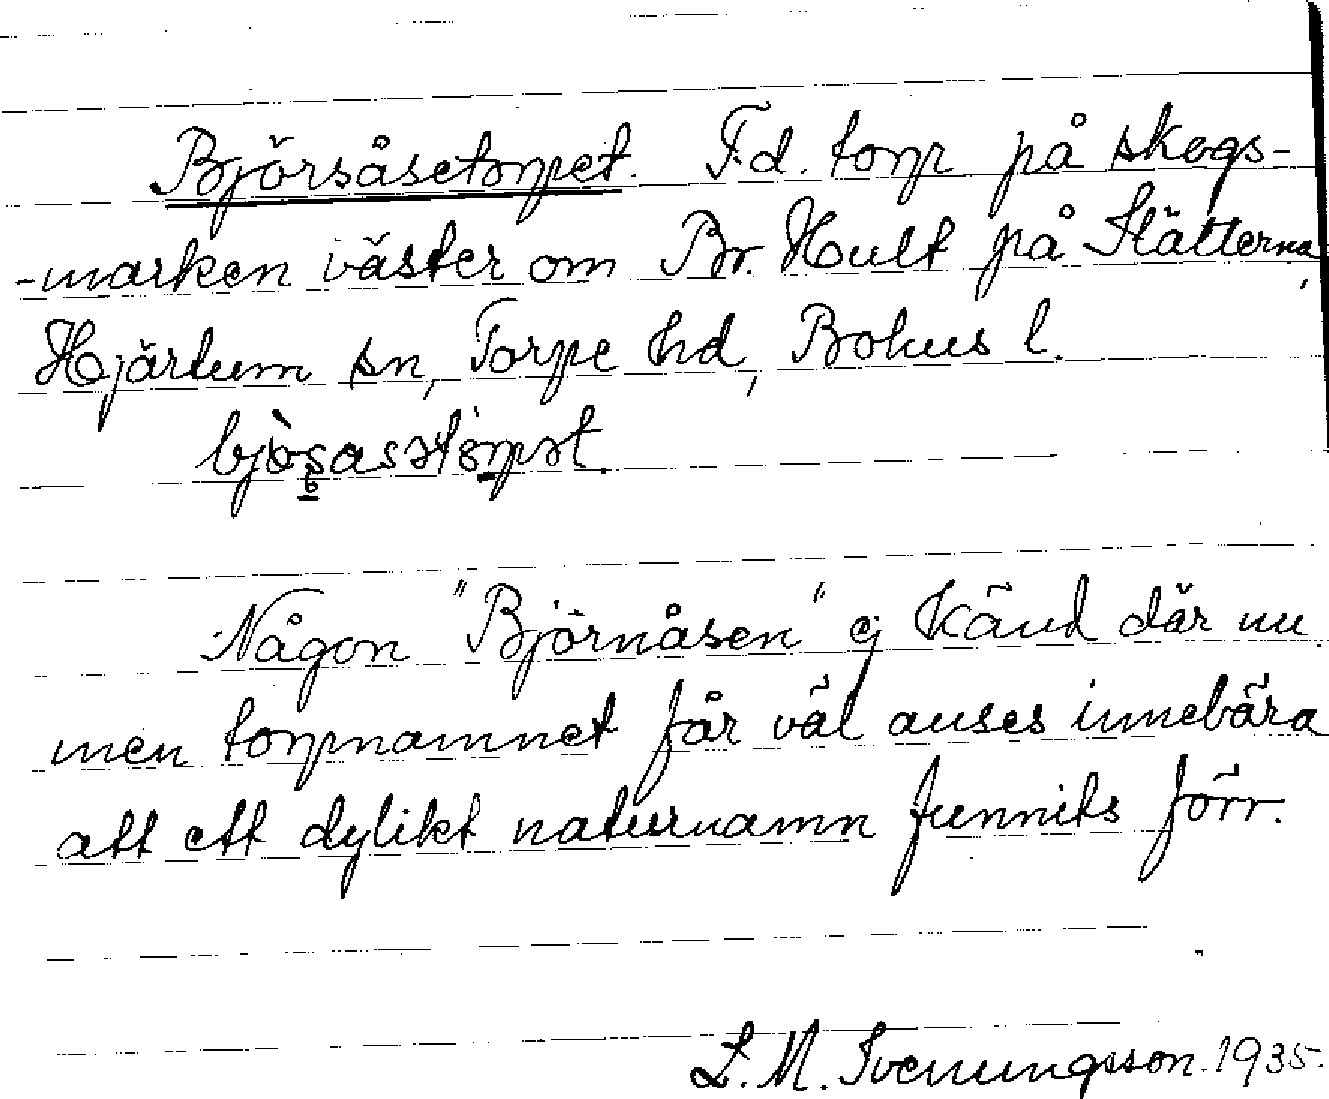 Björsåsetorpet. F.d. torp på skogs-
-marken väster om Br. Hult på Slätterna,
Hjärtum sn, Torpe hd, Bohus l.
Någon "Björnåsen" ej känd där nu
men torpnamnet får väl anses innebära
att ett dylikt naturnamn funnits förr.
L. M. Svenungsson. 1935.